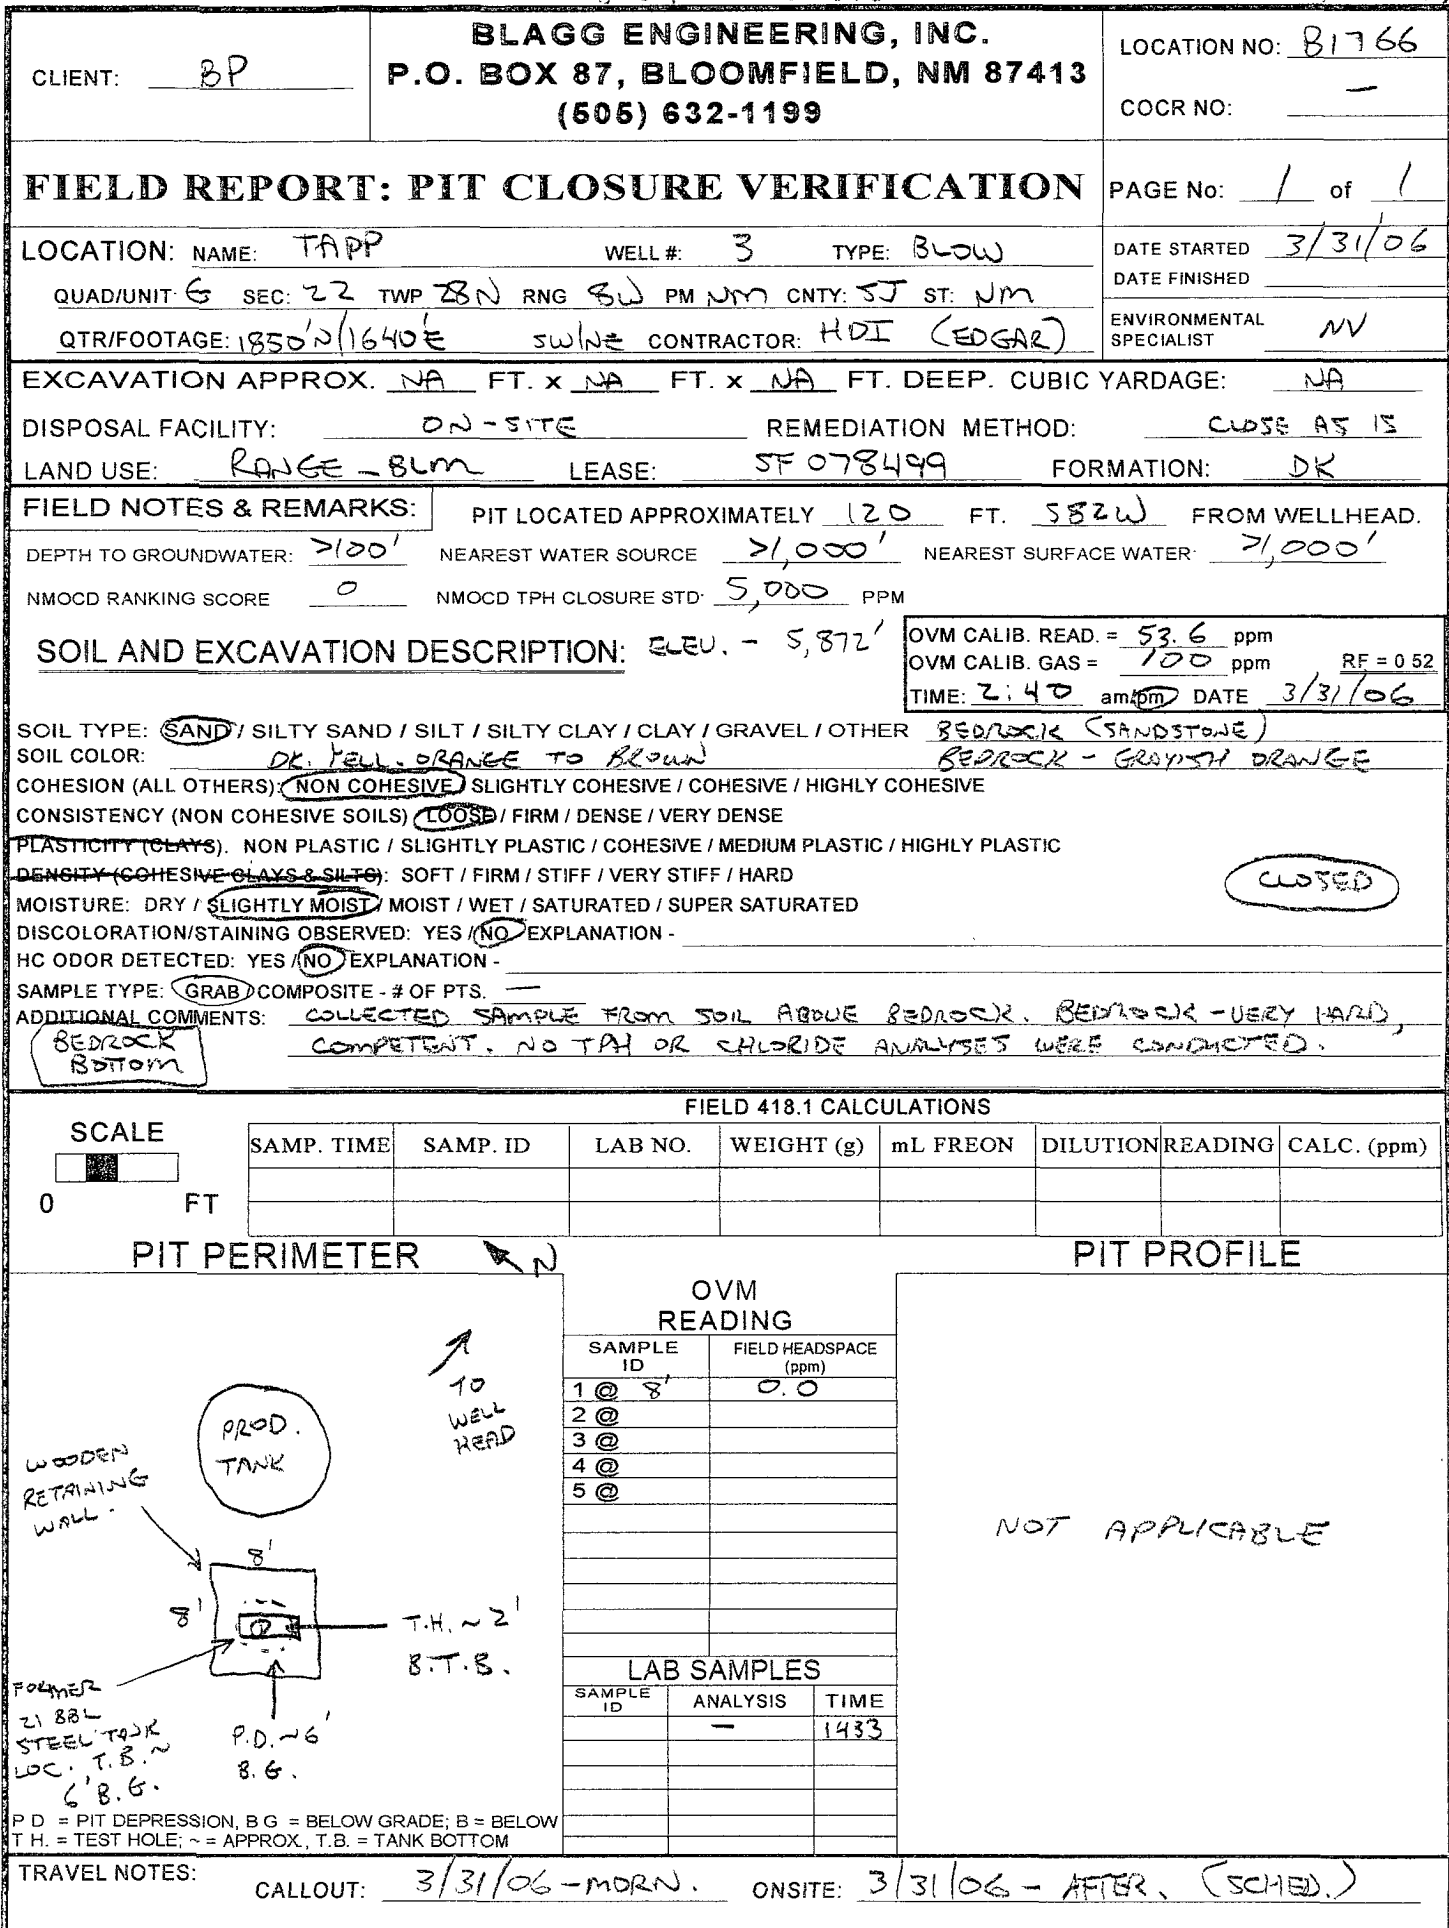 BLAGG ENGINEERING, INC.
P.O. BOX 87, BLOOMFIELD, NM 87413
(505) 632-1199
CLIENT: BP
LOCATION NO: B1766
COCR NO: —
FIELD REPORT: PIT CLOSURE VERIFICATION
PAGE No: 1 of 1
LOCATION: NAME: TAPP WELL #: 3 TYPE: BLOW
DATE STARTED 3/31/06
DATE FINISHED
QUAD/UNIT G SEC: 22 TWP 28N RNG 8W PM NM CNTY: SJ ST: NM
QTR/FOOTAGE: 1850'N/1640'E SW/NE CONTRACTOR: HDI (EDGAR)
ENVIRONMENTAL SPECIALIST NV
EXCAVATION APPROX. NA FT. x NA FT. x NA FT. DEEP. CUBIC YARDAGE: NA
DISPOSAL FACILITY: ON-SITE REMEDIATION METHOD: CLOSE AS IS
LAND USE: RANGE - BLM LEASE: SF 078499 FORMATION: DK
FIELD NOTES & REMARKS: PIT LOCATED APPROXIMATELY 120 FT. S82W FROM WELLHEAD.
DEPTH TO GROUNDWATER: >100' NEAREST WATER SOURCE >1,000' NEAREST SURFACE WATER >1,000'
NMOCD RANKING SCORE 0 NMOCD TPH CLOSURE STD 5,000 PPM
SOIL AND EXCAVATION DESCRIPTION: ELEV. - 5,872'
OVM CALIB. READ. = 53.6 ppm
OVM CALIB. GAS = 100 ppm RF = 0 52
TIME: 2:40 am/pm DATE 3/31/06
SOIL TYPE: SAND / SILTY SAND / SILT / SILTY CLAY / CLAY / GRAVEL / OTHER BEDROCK (SANDSTONE)
SOIL COLOR: DK. YELL. ORANGE TO BROWN BEDROCK - GRAYISH ORANGE
COHESION (ALL OTHERS): NON COHESIVE / SLIGHTLY COHESIVE / COHESIVE / HIGHLY COHESIVE
CONSISTENCY (NON COHESIVE SOILS) LOOSE / FIRM / DENSE / VERY DENSE
PLASTICITY (CLAYS). NON PLASTIC / SLIGHTLY PLASTIC / COHESIVE / MEDIUM PLASTIC / HIGHLY PLASTIC
DENSITY (COHESIVE CLAYS & SILTS): SOFT / FIRM / STIFF / VERY STIFF / HARD
CLOSED
MOISTURE: DRY / SLIGHTLY MOIST / MOIST / WET / SATURATED / SUPER SATURATED
DISCOLORATION/STAINING OBSERVED: YES / NO EXPLANATION -
HC ODOR DETECTED: YES / NO EXPLANATION -
SAMPLE TYPE: GRAB / COMPOSITE - # OF PTS. —
ADDITIONAL COMMENTS: COLLECTED SAMPLE FROM SOIL ABOVE BEDROCK. BEDROCK - VERY HARD,
COMPETENT. NO TPH OR CHLORIDE ANALYSES WERE CONDUCTED.
BEDROCK
BOTTOM
FIELD 418.1 CALCULATIONS
SCALE
0 FT
SAMP. TIME SAMP. ID LAB NO. WEIGHT (g) mL FREON DILUTION READING CALC. (ppm)
PIT PERIMETER
N
PIT PROFILE
OVM
READING
SAMPLE ID FIELD HEADSPACE (ppm)
1 @ 8' 0.0
2 @
3 @
4 @
5 @
TO
WELL
HEAD
PROD.
TANK
WOODEN
RETAINING
WALL.
8'
8'
T.H. ~ 2'
B.T.B.
FORMER
21 BBL
STEEL TANK
LOC. T.B. ~
6' B.G.
P.D. ~6'
B.G.
NOT APPLICABLE
LAB SAMPLES
SAMPLE ID ANALYSIS TIME
— 1433
P D = PIT DEPRESSION, B G = BELOW GRADE; B = BELOW
T H. = TEST HOLE; ~ = APPROX., T.B. = TANK BOTTOM
TRAVEL NOTES: CALLOUT: 3/31/06 - MORN. ONSITE: 3/31/06 - AFTER. (SCHED.)